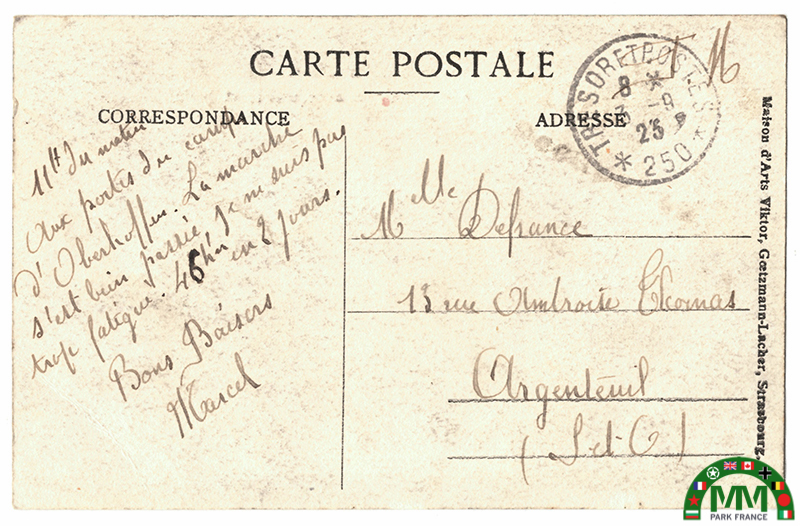 CARTE POSTALE
CORRESPONDANCE
ADRESSE
F M
TRESOR ET POSTES
8 *
3 - 9
23
* 250 *
11h du matin
aux portes du camp
d'Oberhoffen. La marche
s'est bien passée, je ne suis pas
trop fatigué. 46 km en 2 jours.
Bons Baisers
Marcel
Melle Defrance
13 rue Ambroise Thomas
Argenteuil
(S-et-O)
Maison d'Arts Viktor, Gœtzmann-Lacher, Strasbourg.
MM
PARK FRANCE